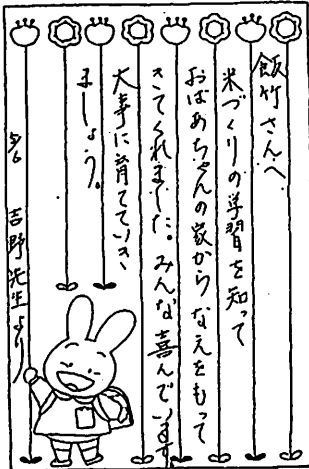 飯竹さんへ
米づくりの学習を知って
おばあちゃんの家から なえをもって
きてくれました。みんな喜んでいます。
大事に育てていき
ましょう。
5/6 吉野先生より